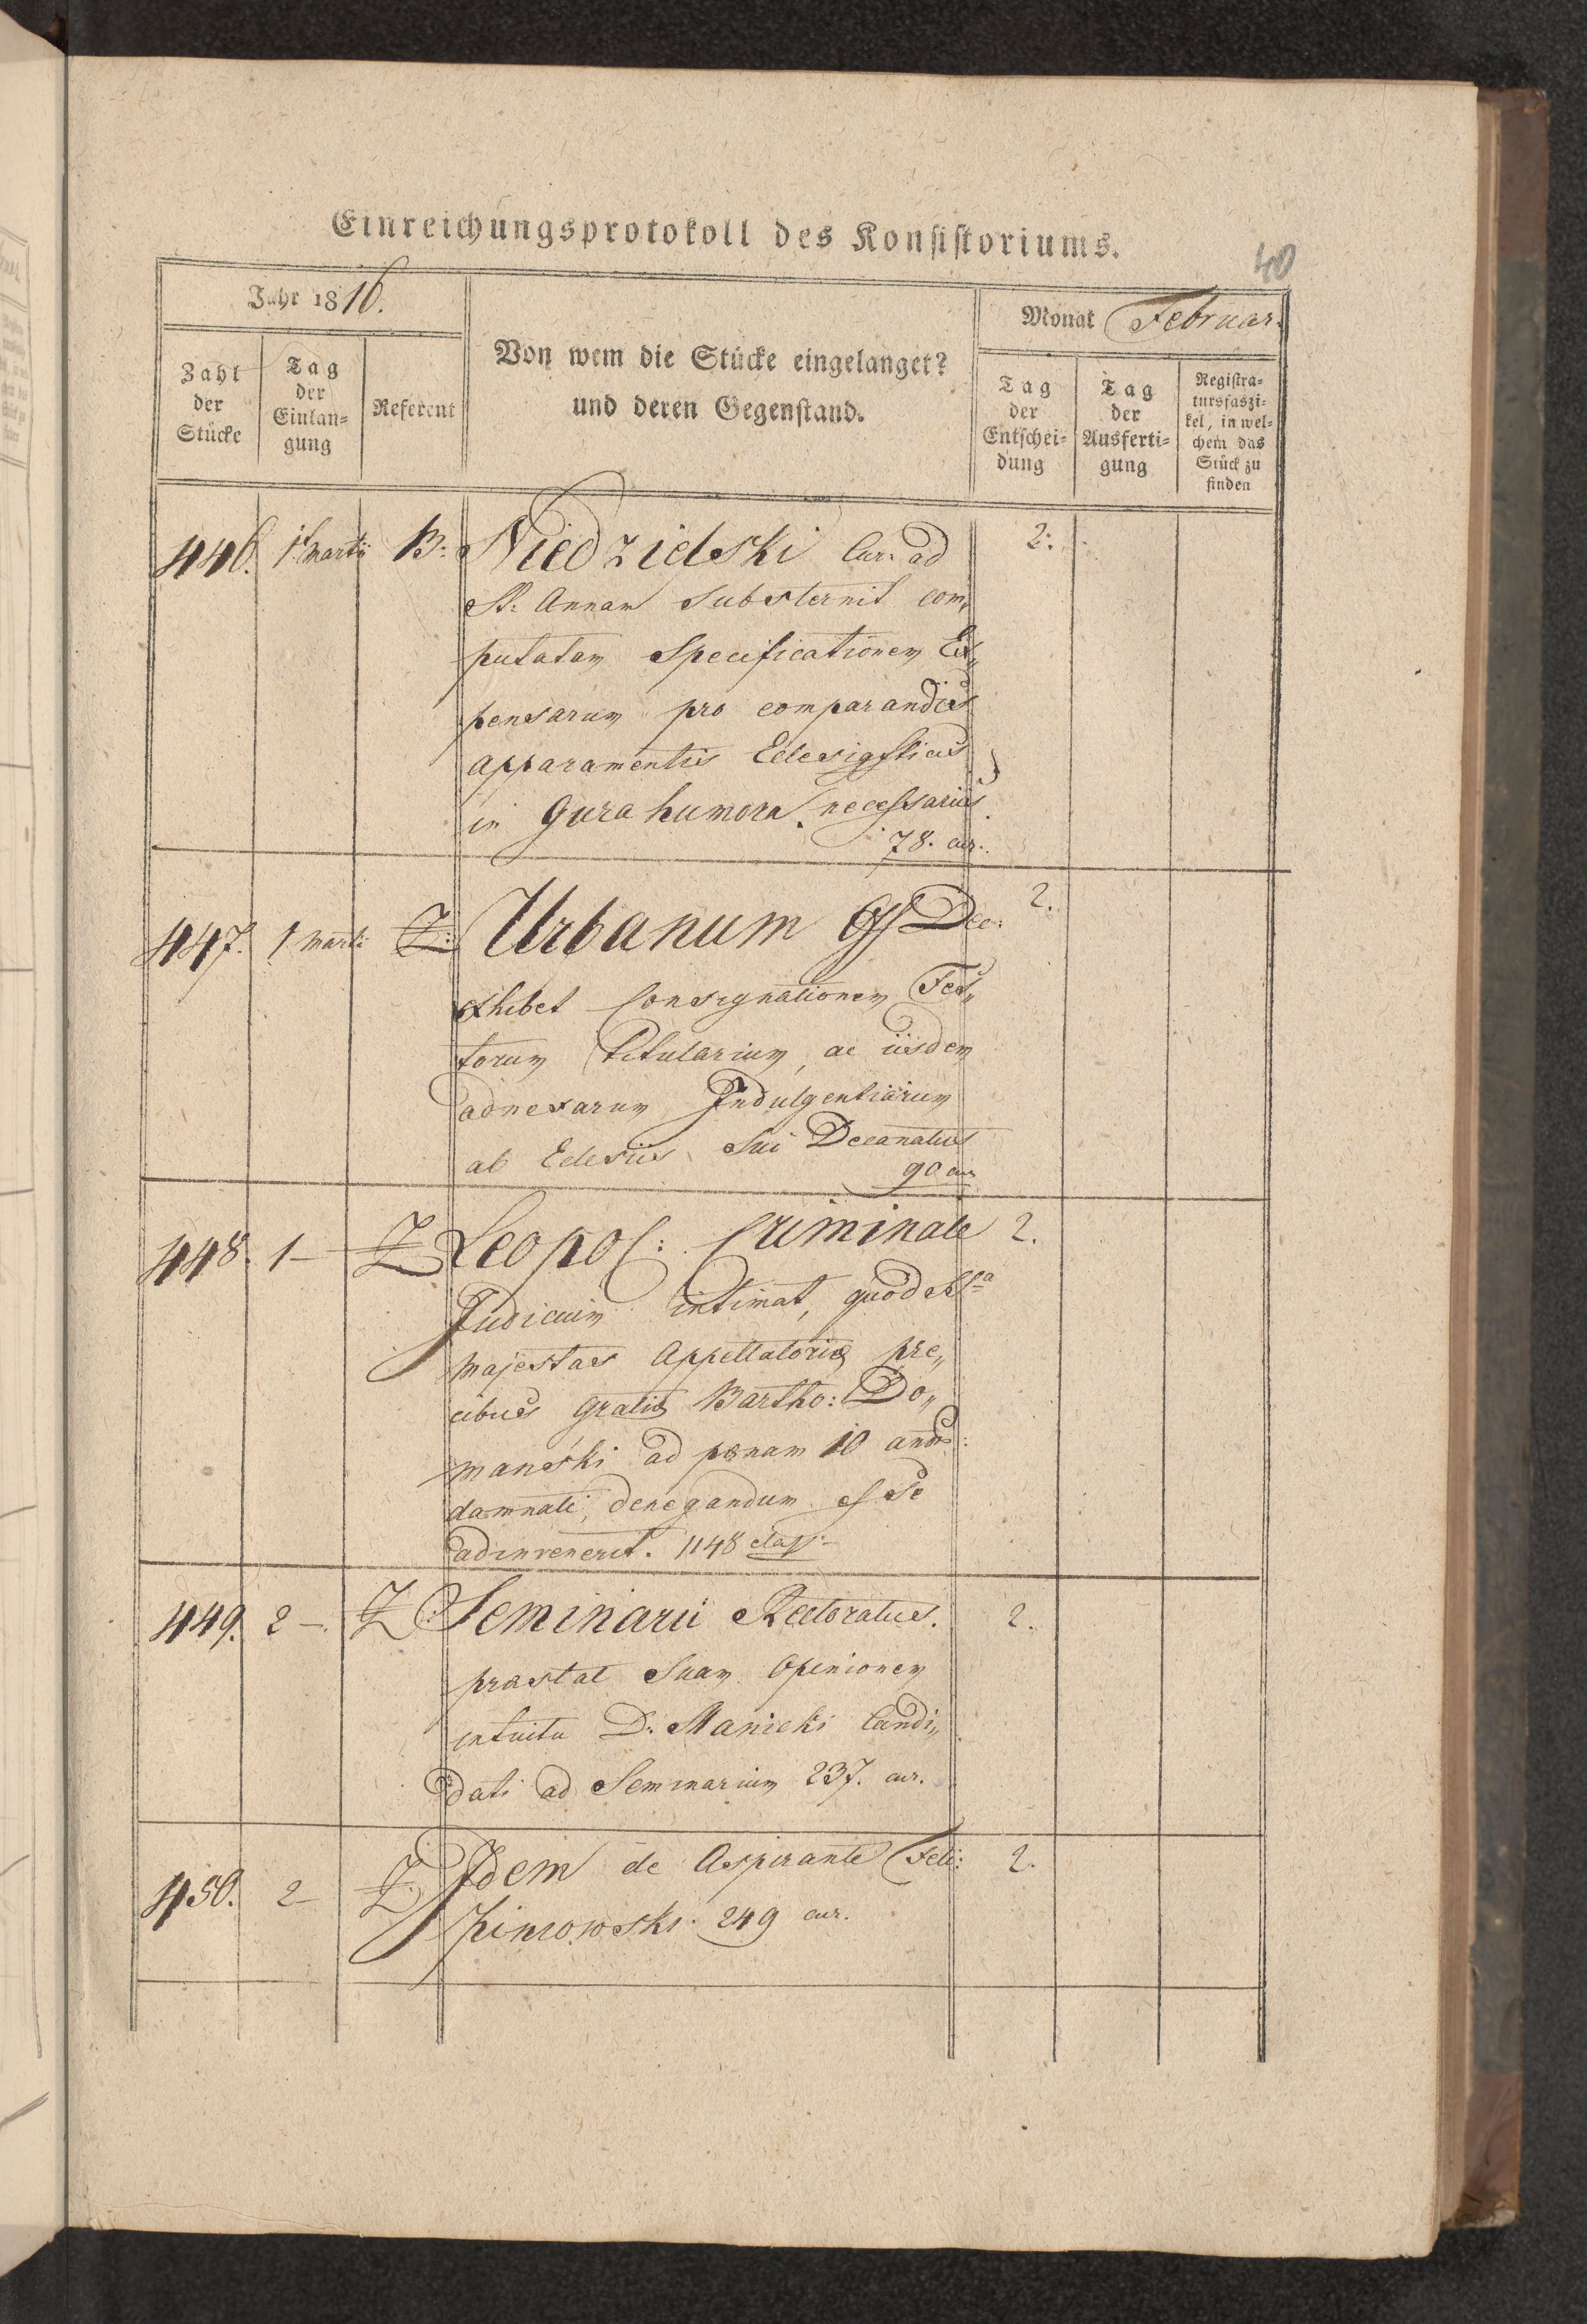 Einreichungsprotokoll des Konsistoriums.
40
Jahr 1816.
Monat Februar.
Zahl der Stücke
Tag der Einlan=gung
Referent
Von wem die Stücke eingelanget?
und deren Gegenstand.
Tag der Entschei=dung
Tag der Ausferti=gung
Registra=tursfaszi=kel, in wel=chem das Stück zu finden
446. 1 Marti B: Niedzielski Cur: ad 2.
St: Annam Substernit com„
putatam Specificationem Ex„
pensarum pro comparandis
apparamentis Eclesiasticis
in Gura humora necessariis
78. cur.
447. 1 Marti Z: Urbanum Off Dec: 2.
exhibet Consignationem Fes„
torum Titularium, ac iisdem
adnexarum Indulgentiarum
ab Eclesiis Sui Decanatus
90 cur
448. 1 — Z Leopol: Criminale 2.
Judicium intimat, quod Sa
Majestas Appellatoria pre„
cibus gratis Bartho: Do„
manski ad pœnam 10 ann:
damnati, denegandum esse
adinvenerit. 1148 class:
449. 2 —. Z: Seminarii Rectoratus. 2.
præstat Suam Opinionem
intuitu D: Manicki Candi„
dati ad Seminarium 237. cur.
450. 2 — Z Idem de Aspirante Feli: 2.
249 cur.